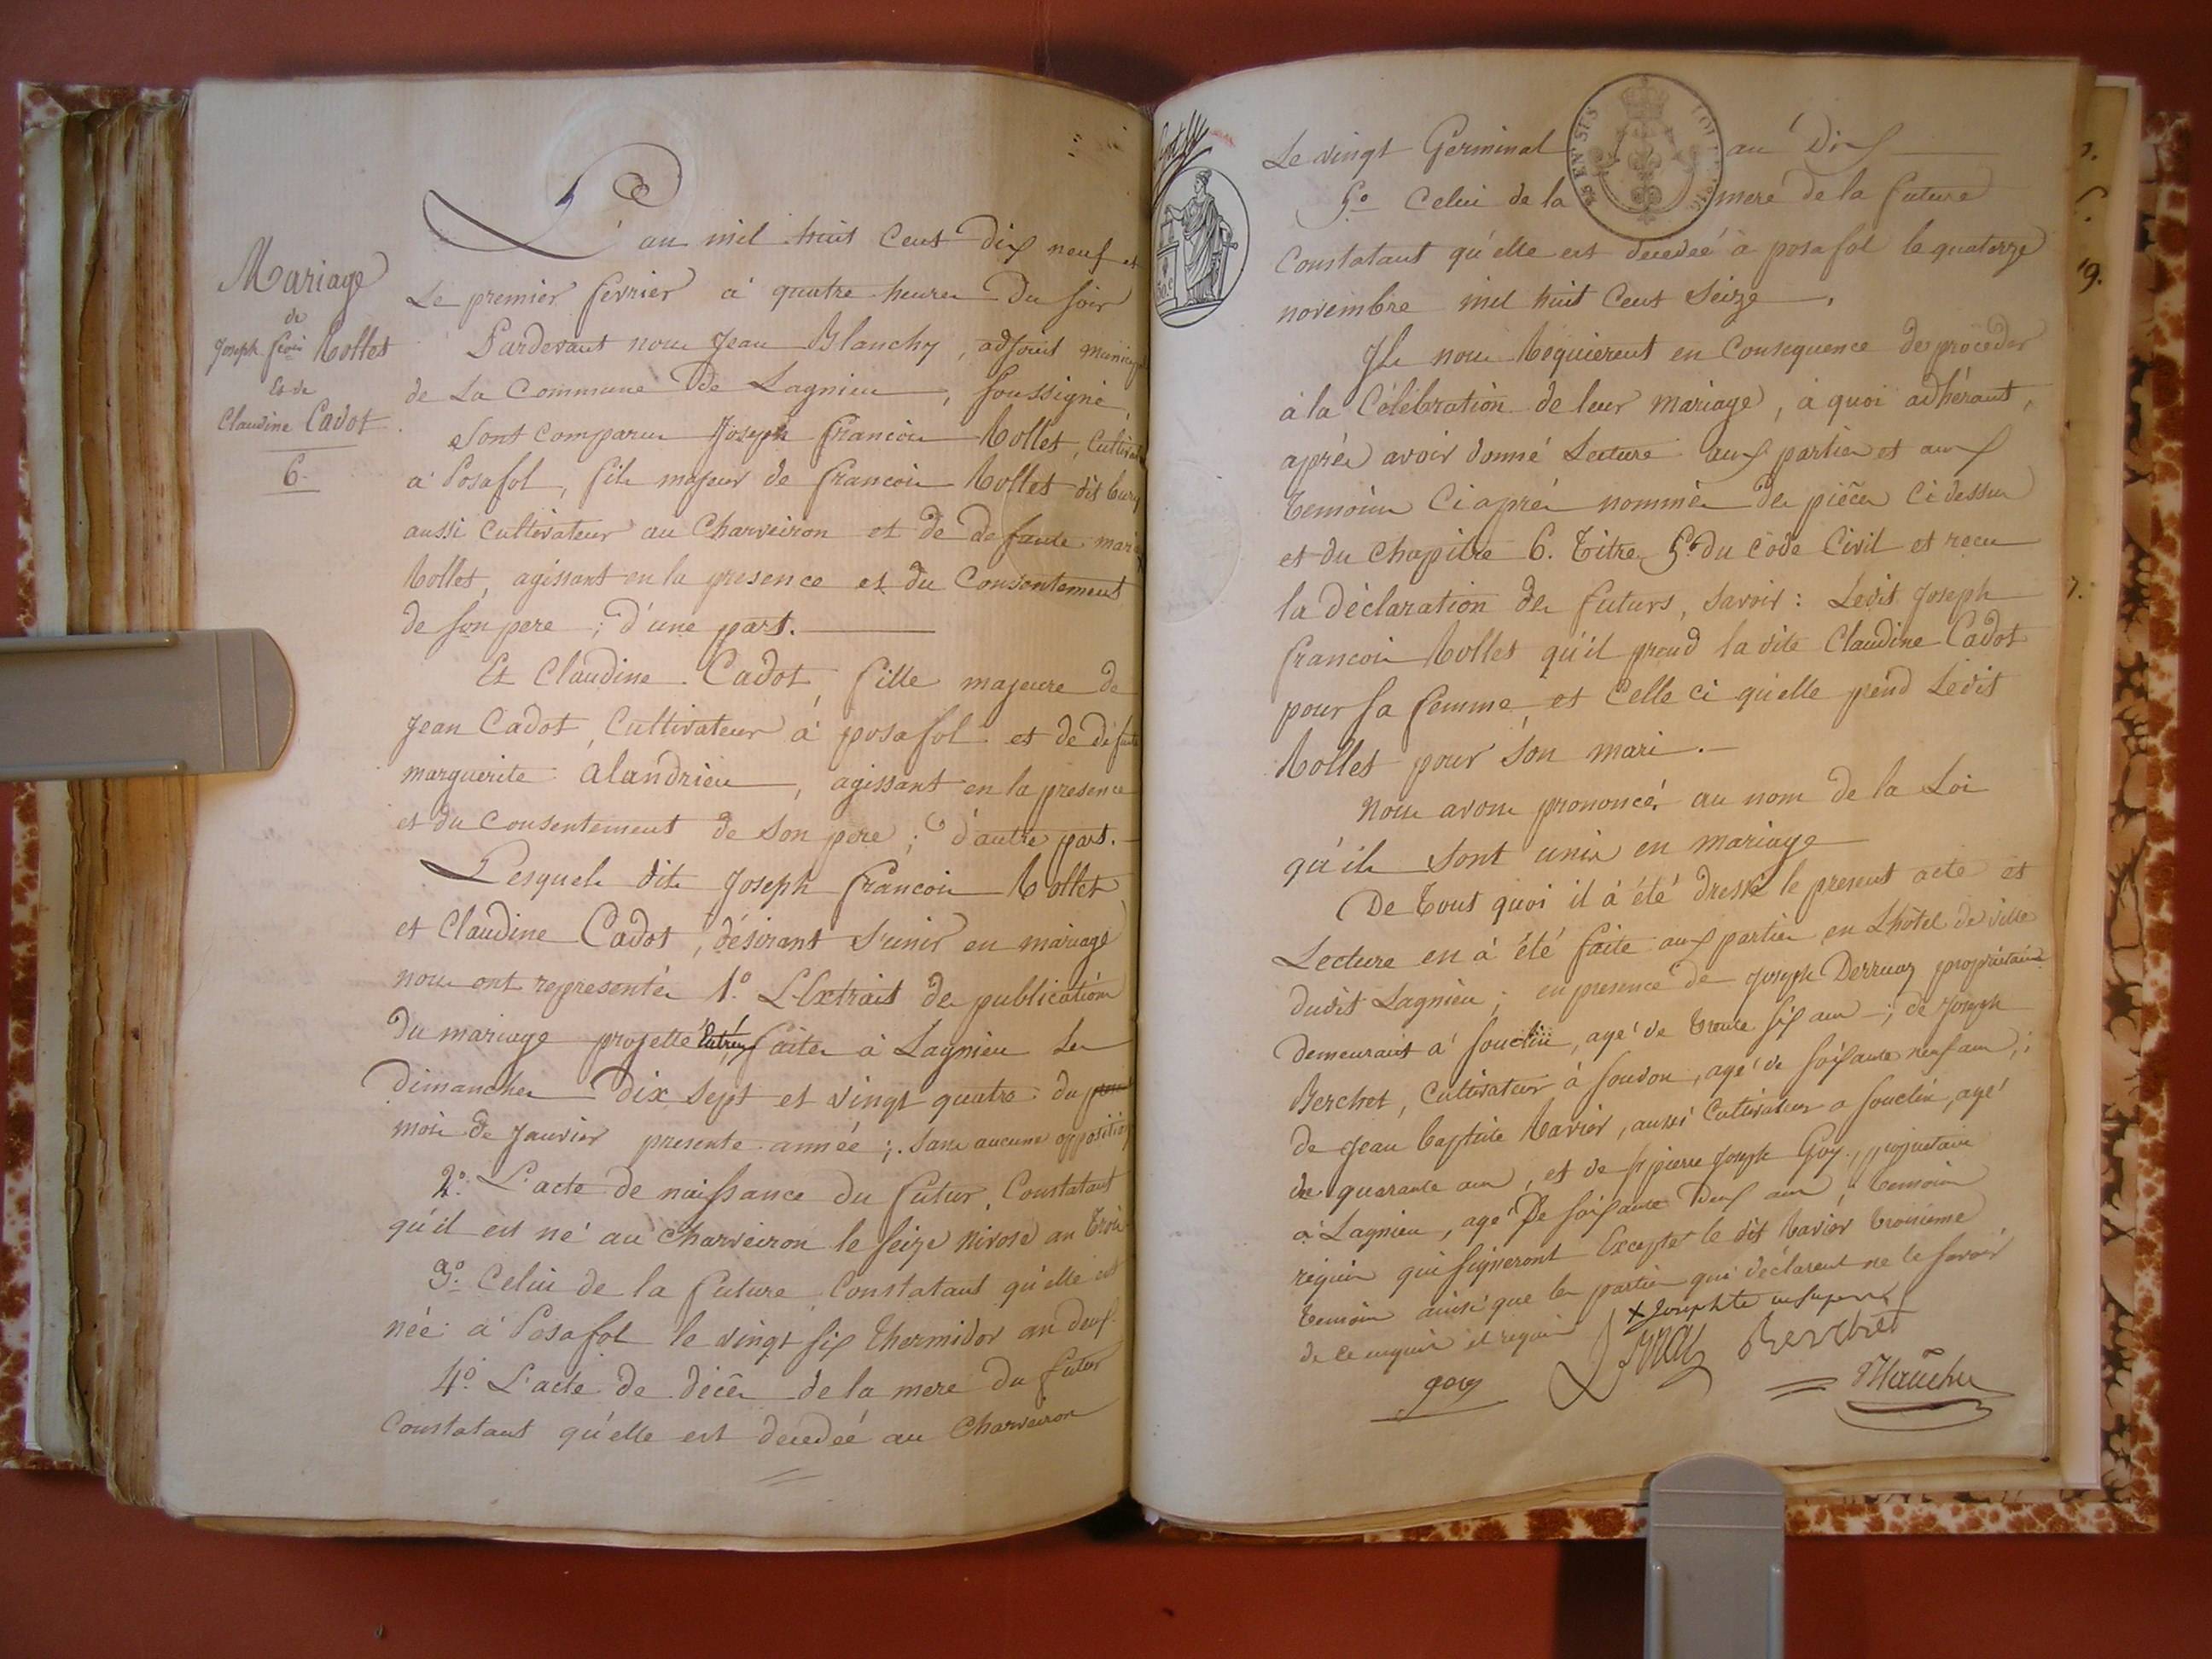 Mariage
de
Joseph fçois Rollet
Et de
Claudine Cadot
6.
L'an mil huit Cent dix neuf et
Le premier fevrier à quatre heures du soir
Pardevant nous Jean Blanchy, adjoint municipal
de La Commune de Lagnieu, soussigné,
Sont comparus Joseph francois Rollet, Cultivateur
à Posafol, fils majeur de francois Rollet dit
aussi Cultivateur au Charveiron et de defunte marie
Rollet, agissant en la presence et du Consentement
de son pere; d'une part.
Et Claudine Cadot, fille majeure de
Jean Cadot, Cultivateur à posafol et de défunte
marguerite alandrieu, agissant en la presence
et du Consentement de son pere; d'autre part.
Lesquels dits Joseph francois Rollet
et Claudine Cadot, désirant s'unir en mariage
nous ont representés 1.° L'Extrait des publications
du mariage projetté faites à Lagnieu les
Dimanches Dix sept et vingt quatre du
mois de Janvier presente année; sans aucune opposition
2.° L'acte de naissance du futur, Constatant
qu'il est né au Charveiron le seize nivose an trois
3.° Celui de la future Constatant qu'elle est
née à Posafol le vingt six thermidor an deux
4.° L'acte de décès de la mere du futur
Constatant qu'elle est decedée au Charveiron
Le vingt Germinal an Dix
5.° Celui de la mere de la future
Constatant qu'elle est decedeé à posafol le quatorze
novembre mil huit Cent Seize.
Ils nous Requierent en Consequence de procèder
à la Célébration de leur mariage, à quoi adhérant,
après avoir donné Lecture aux parties et aux
temoins Ci après nommés des pièces Ci dessus
et du Chapitre 6. titre 5.° du Code Civil et recu
la déclaration des futurs, savoir: Ledit Joseph
francois Rollet qu'il prend la dite Claudine Cadot
pour sa femme, et Celle ci qu'elle prend Ledit
Rollet pour son mari.
Nous avons prononcé, au nom de la Loi
qu'ils sont unis en mariage
De tout quoi il à été dressé le present acte et
Lecture en à été faite aux parties en L'hôtel de ville
dudit Lagnieu; en presence de Joseph Derruaz propriétaire
demeurant à souclin, agé de trente six ans; de Joseph
Berchet, Cultivateur à soudon, agé de soixante neuf ans;
de Jean baptiste Ravier, aussi Cultivateur a souclin, agé
de quarante ans, et de Sr pierre Joseph Goy, propriétaire
à Lagnieu, agé De soixante Deux ans; temoins
requis qui signeront Excepté le dit Ravier troisième
temoin ainsi que les parties qui déclarent ne le savoir
de ce enquis et requis
Berchet
goy
Blanchy